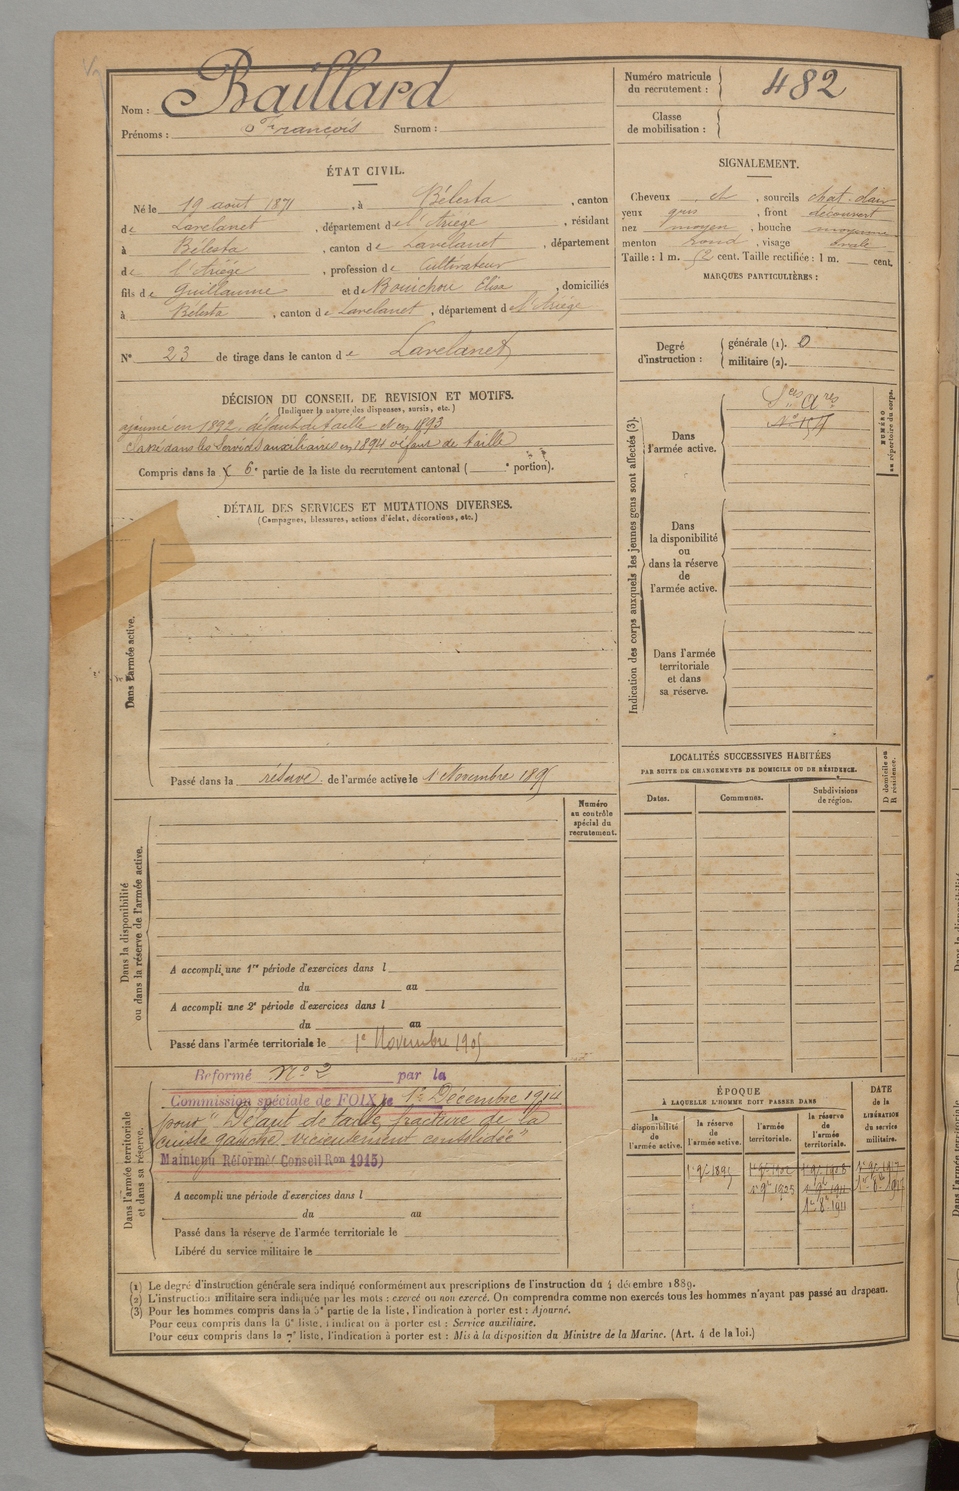 Nom : Baillard
Prénoms : François Surnom :
Numéro matricule du recrutement : 482
Classe de mobilisation :
ÉTAT CIVIL.
Né le 19 août 1871, à Bélesta, canton
de Lavelanet, département de l'Ariège, résidant
à Bélesta, canton de Lavelanet, département
de l'Ariège, profession de Cultivateur
fils de Guillaume et de Bouichou Elise, domiciliés
à Bélesta, canton de Lavelanet, département de l'Ariège
N° 23 de tirage dans le canton de Lavelanet
SIGNALEMENT.
Cheveux et, sourcils chat. clair
yeux gris, front découvert
nez moyen, bouche moyenne
menton rond, visage ovale
Taille : 1 m. 52 cent. Taille rectifiée : 1 m. cent.
MARQUES PARTICULIÈRES :
Degré d'instruction :
générale (1). 0
militaire (2).
DÉCISION DU CONSEIL DE REVISION ET MOTIFS.
(Indiquer la nature des dispenses, sursis, etc.)
ajourné en 1892, défaut de taille et en 1893
Classé dans les Services auxiliaires en 1894 défaut de taille
Compris dans la 6e partie de la liste du recrutement cantonal ( e portion).
DÉTAIL DES SERVICES ET MUTATIONS DIVERSES.
(Campagnes, blessures, actions d'éclat, décorations, etc.)
Dans l'armée active.
Passé dans la réserve de l'armée active le 1 Novembre 1895
Indication des corps auxquels les jeunes gens sont affectés (3).
Dans l'armée active.
Sces Ares
Dans la disponibilité ou dans la réserve de l'armée active.
Dans l'armée territoriale et dans sa réserve.
NUMÉRO au répertoire du corps.
Dans la disponibilité ou dans la réserve de l'armée active.
Numéro au contrôle spécial du recrutement.
A accompli une 1re période d'exercices dans l
du au
A accompli une 2e période d'exercices dans l
du au
Passé dans l'armée territoriale le 1er Novembre 1905
LOCALITÉS SUCCESSIVES HABITÉES
PAR SUITE DE CHANGEMENTS DE DOMICILE OU DE RÉSIDENCE.
Dates. Communes. Subdivisions de région. D domicile ou R résidence.
Dans l'armée territoriale et dans sa réserve.
Reformé N° 2 par la
Commission spéciale de FOIX le 1er Décembre 1914
pour "Défaut de taille, fracture de la
cuisse gauche vicieusement consolidée"
Maintenu Réformé (Conseil Ron 1915)
A accompli une période d'exercices dans l
du au
Passé dans la réserve de l'armée territoriale le
Libéré du service militaire le
ÉPOQUE
À LAQUELLE L'HOMME DOIT PASSER DANS
la disponibilité de l'armée active.
la réserve de l'armée active.
l'armée territoriale.
la réserve de l'armée territoriale.
DATE de la LIBÉRATION du service militaire.
(1) Le degré d'instruction générale sera indiqué conformément aux prescriptions de l'instruction du 4 décembre 1889.
(2) L'instruction militaire sera indiquée par les mots : exercé ou non exercé. On comprendra comme non exercés tous les hommes n'ayant pas passé au drapeau.
(3) Pour les hommes compris dans la 5e partie de la liste, l'indication à porter est : Ajourné.
Pour ceux compris dans la 6e liste, l'indication à porter est : Service auxiliaire.
Pour ceux compris dans la 7e liste, l'indication à porter est : Mis à la disposition du Ministre de la Marine. (Art. 4 de la loi.)